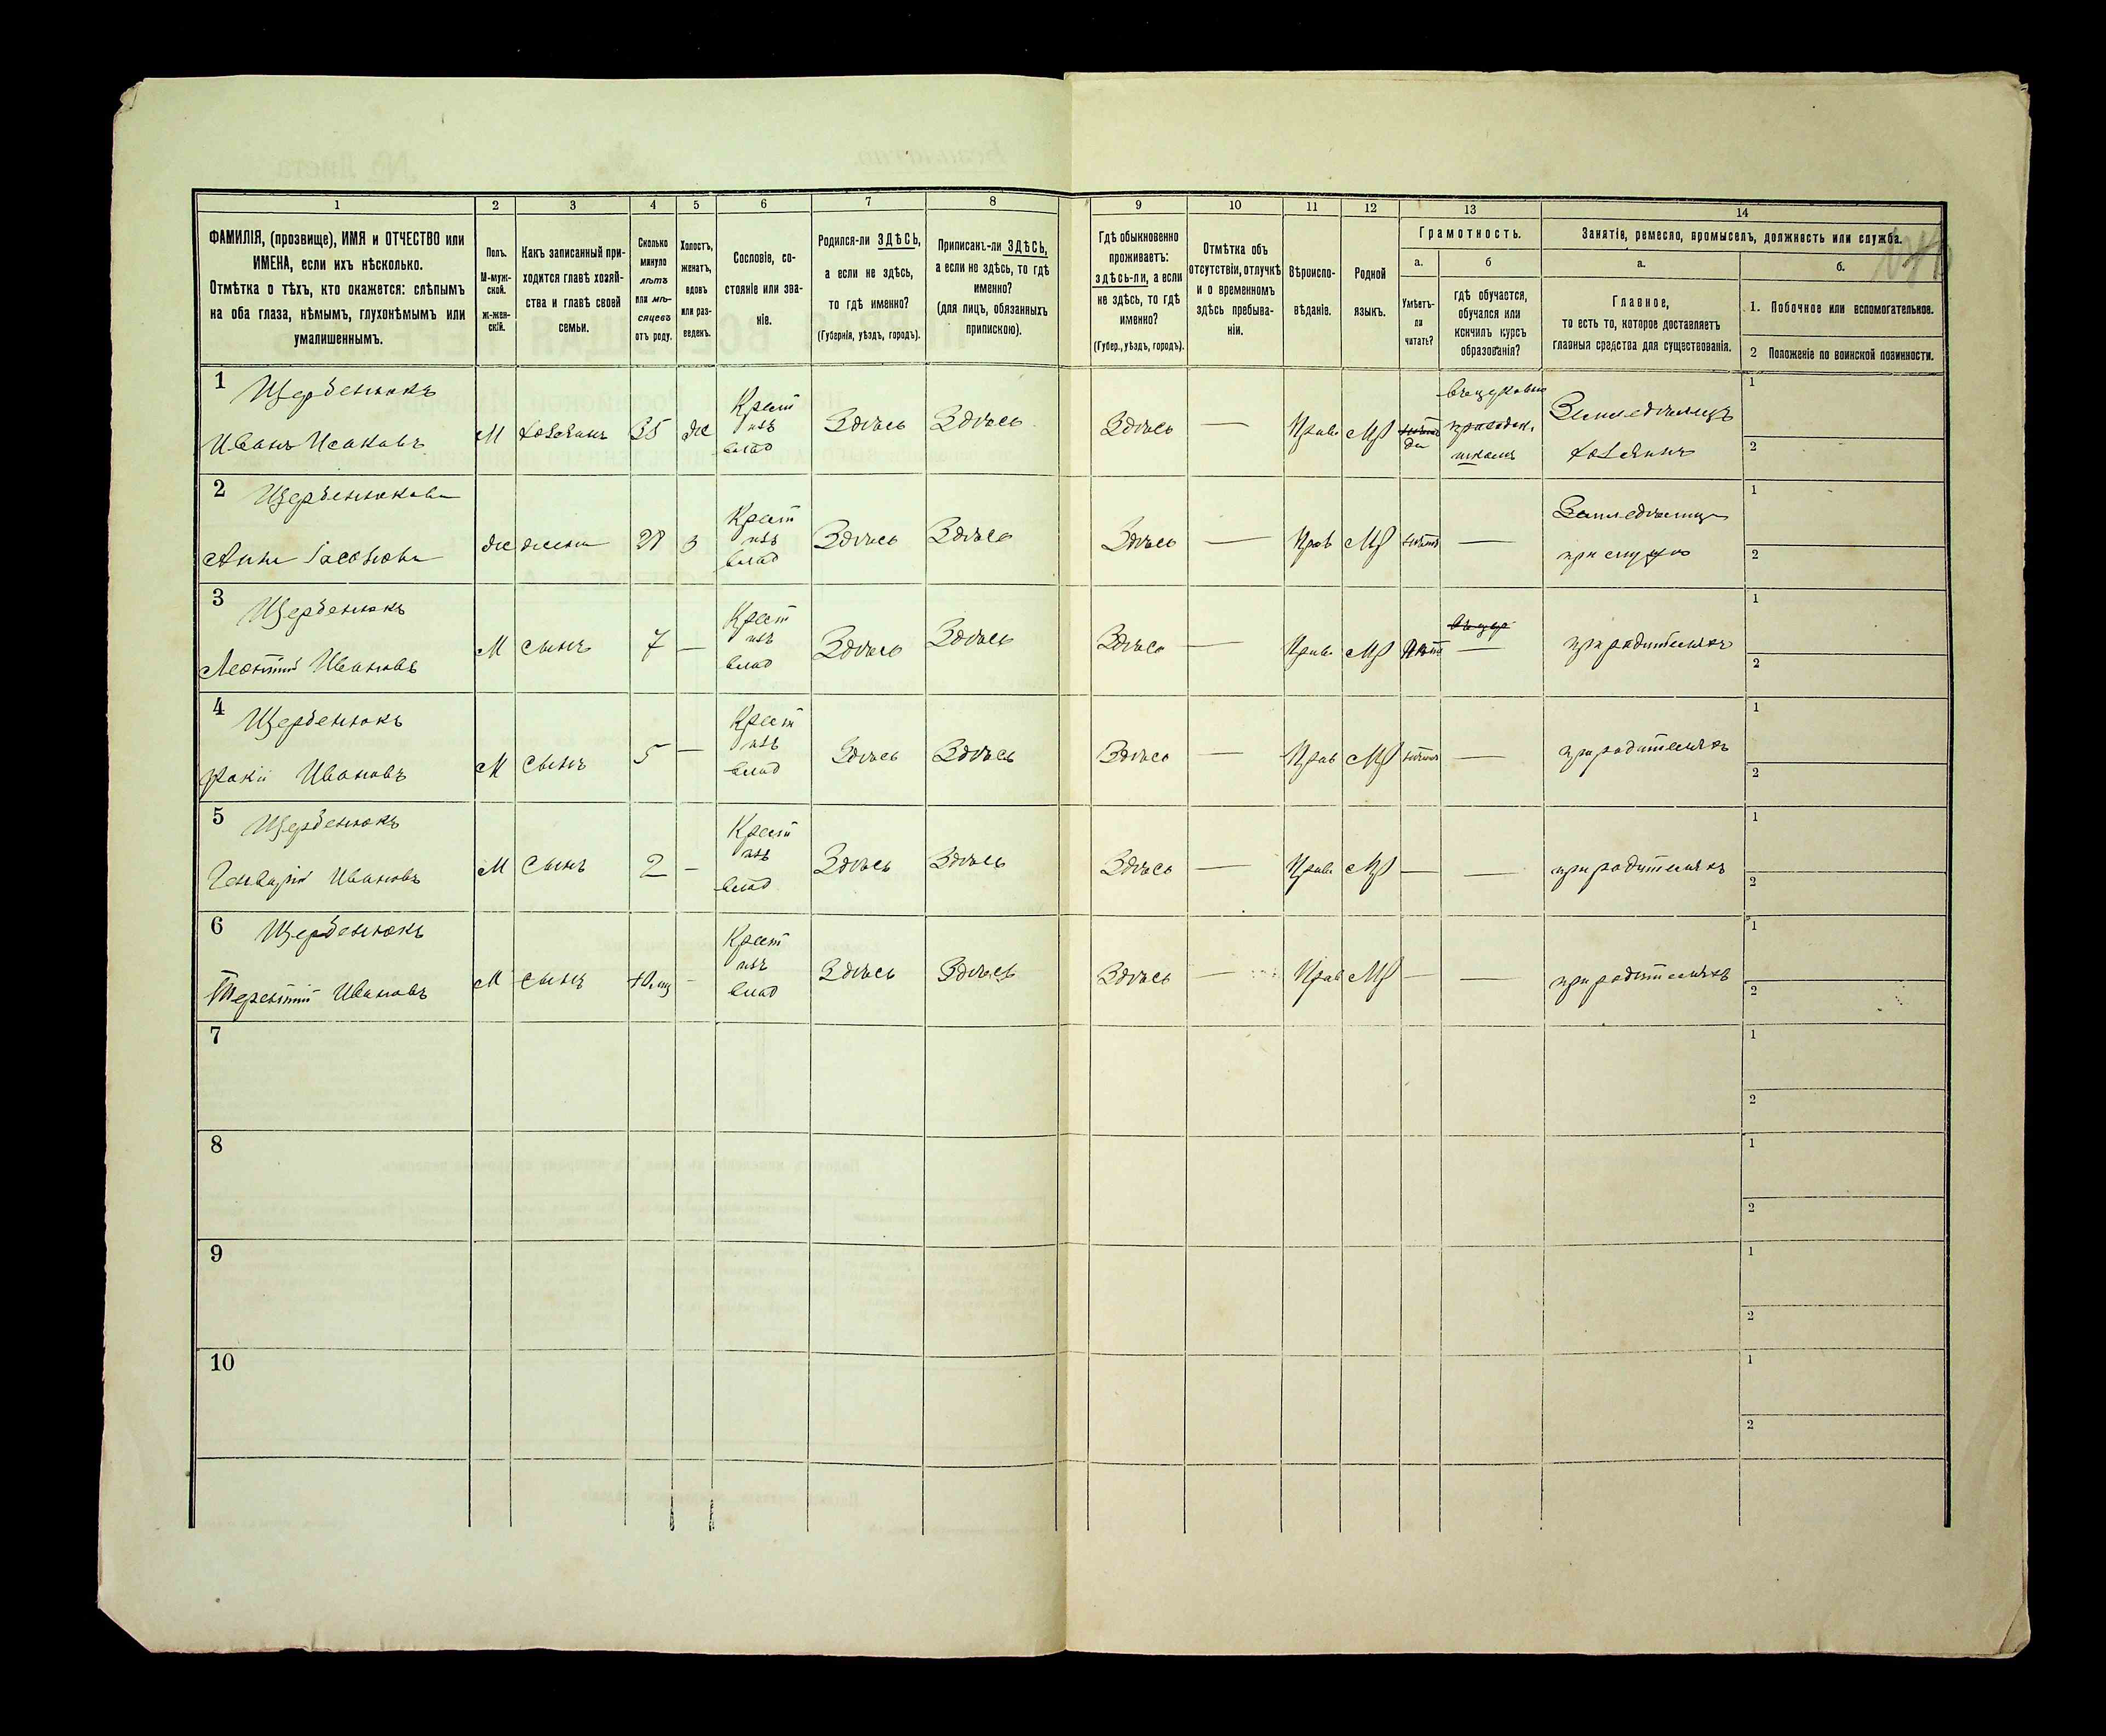 1 2 3 4 5 6 7 8 9 10 11 12 13 14
ФАМИЛІЯ, (прозвище), ИМЯ и ОТЧЕСТВО или
ИМЕНА, если ихъ нѣсколько.
Отмѣтка о тѣхъ, кто окажется: слѣпымъ
на оба глаза, нѣмымъ, глухонѣмымъ или
умалишеннымъ.
Полъ.
М-муж-
ской.
ж-жен-
скій.
Какъ записанный при-
ходится главѣ хозяй-
ства и главѣ своей
семьи.
Сколько
минуло
лѣтъ
или мѣ-
сяцевъ
отъ роду.
Холостъ,
женатъ,
вдовъ
или раз-
веденъ.
Сословіе, со-
стояніе или зва-
ніе.
Родился-ли ЗДѢСЬ,
а если не здѣсь,
то гдѣ именно?
(Губернія, уѣздъ, городъ).
Приписанъ-ли ЗДѢСЬ,
а если не здѣсь, то гдѣ
именно?
(для лицъ, обязанныхъ
припискою).
Гдѣ обыкновенно
проживаетъ:
здѣсь-ли, а если
не здѣсь, то гдѣ
именно?
(Губер., уѣздъ, городъ).
Отмѣтка объ
отсутствіи, отлучкѣ
и о временномъ
здѣсь пребыва-
ніи.
Вѣроиспо-
вѣданіе.
Родной
языкъ.
Грамотность.
а.
Умѣетъ-
ли
читать?
б
гдѣ обучается,
обучался или
кончилъ курсъ
образованія?
Занятіе, ремесло, промыселъ, должность или служба.
а.
Главное,
то есть то, которое доставляетъ
главныя средства для существованія.
б.
1. Побочное или вспомогательное.
2 Положеніе по воинской повинности.
1 Щербенюкъ
Иванъ Исаковъ
М
хозяинъ
35
Ж
Крест
изъ
влад
Здѣсь
Здѣсь
Здѣсь
—
Прав.
МР
да
приходск.
школѣ
Земледѣлецъ
хозяинъ
1
2
2 Щербенюкова
Анна
ж
жена
З
Крест
изъ
влад
Здѣсь
Здѣсь
Здѣсь
—
Прав
МР
нѣтъ
—
при мужѣ
1
2
3 Щербенюкъ
Леонтій Ивановъ
М
сынъ
7
—
Крест
изъ
влад
Здѣсь
Здѣсь
Здѣсь
—
Прав.
МР
нѣтъ
—
при родителяхъ
1
2
4 Щербенюкъ
Фокій Ивановъ
М
сынъ
5
—
Крест
изъ
влад
Здѣсь
Здѣсь
Здѣсь
—
Прав
МР
нѣтъ
—
при родителяхъ
1
2
5 Щербенюкъ
Генварій Ивановъ
М
сынъ
2
—
Крест
изъ
влад
Здѣсь
Здѣсь
Здѣсь
—
Прав.
МР
—
—
при родителяхъ
1
2
6 Щербенюкъ
Терентій Ивановъ
М
сынъ
—
Крест
изъ
влад
Здѣсь
Здѣсь
Здѣсь
—
Прав
МР
—
—
при родителяхъ
1
2
7
1
2
8
1
2
9
1
2
10
1
2